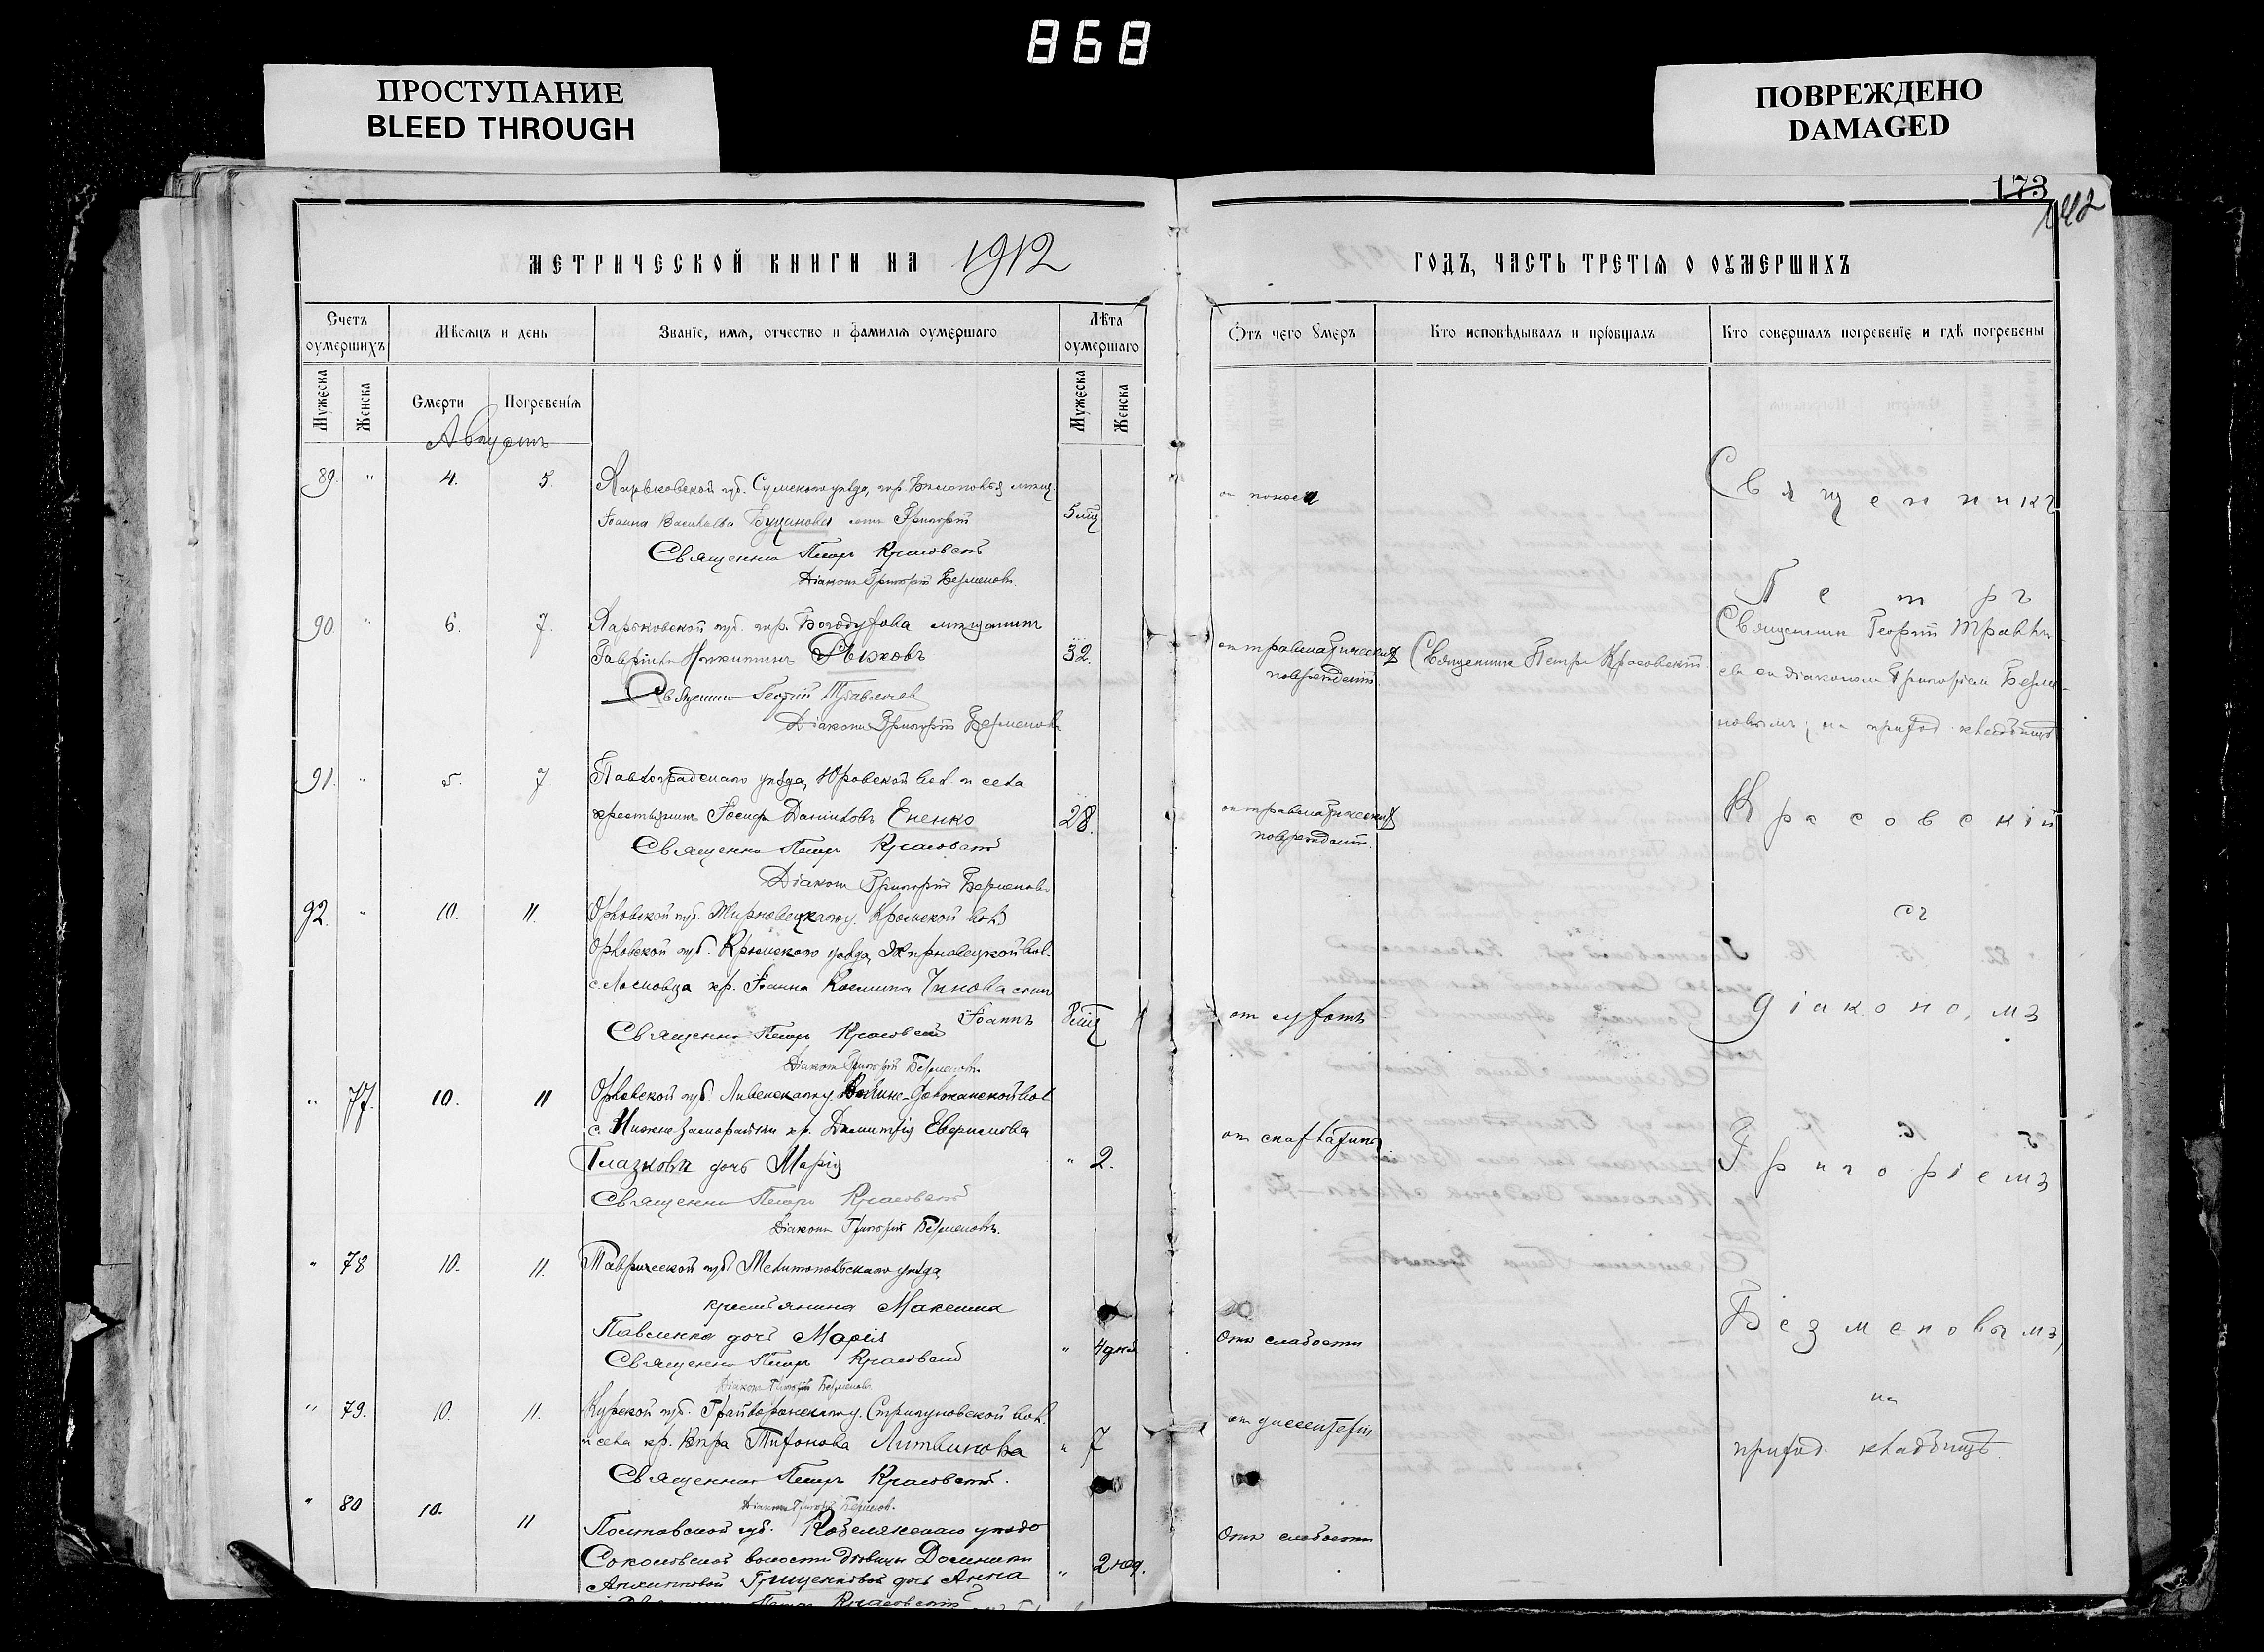 868
ПРОСТУПАНИЕ
BLEED THROUGH
ПОВРЕЖДЕНО
DAMAGED
173
142
МЕТРИЧЕСКОЙ КНИГИ НА 1912
ГОДЪ, ЧАСТЬ ТРЕТІЯ О ОУМЕРШИХЪ
Счетъ оумершихъ
Мѣсяцъ и день
Званіе, имя, отчество и фамилія оумершаго
Лѣта оумершаго
Отъ чего умеръ
Кто исповѣдывалъ и пріобщалъ
Кто совершалъ погребеніе и гдѣ погребены
Мужеска
Женска
Смерти
Погребенія
Мужеска
Женска
Августъ
89. " 4. 5. Харьковской губ. Сумского уѣзда, гор. Бѣлополья мѣщ.
Іоанна Васильева Буцанова сынъ Григорій
5 мѣс
от поноса
Священникъ Петръ Красовскій
Діаконъ Григорій Безменовъ.
90. " 6. 7. Харьковской губ. гор. Богодухова мѣщанинъ
Гавріилъ Никитинъ Языковъ
32.
от травматическихъ поврежденій.
Священникъ Петръ Красовскій.
Священникъ Георгій
Діаконъ Григорій Безменовъ
Священник Георгій
съ діакономъ Григоріем Безме-
новымъ, на приход. кладбищѣ
91. " 5. 7. Павлоградскаго уѣзда, Юрьевской вол. и села
крестьянинъ Іосифъ Даніиловъ Єненко
28.
от травматическихъ поврежденій.
Священникъ Петръ Красовскій
Діаконъ Григорій Безменовъ
92. " 10. 11. Орловской губ. Жирновецкаго у. Кромской вол.
Орловской губ. Кромскаго уѣзда, Жирновецкой вол.
кр. Іоанна Космина сынъ
Іоаннъ
8 мѣс
Священникъ Петръ Красовскій
Діаконъ Григорій Безменовъ
" 77. 10. 11 Орловской губ. Ливенскаго у.
с. кр. Димитрія
Глазкова дочь Марія
" 2.
от скарлатины
Священникъ Петръ Красовскій
Діаконъ Григорій Безменовъ.
" 78 10. 11. Таврической губ. Мелитопольскаго уѣзда,
крестьянина Максима
Павленко дочь Марія
" 4 дней
Отъ слабости
Священникъ Петръ Красовскій
Діаконъ Григорій Безменовъ
" 79. 10. 11. Курской губ. Грайворонскаго у. Стригуновской вол.
и села кр. Тихонова Литвинова
" 7
от диссентеріи
Священникъ Петръ Красовскій.
Діаконъ Григорій Безменов.
" 80 10. 11 Полтавской губ. Кобелякскаго уѣзда
Соколовской волости дѣвицы Домники
Грищенковой дочь Анна
" 2 нед.
Отъ слабости
Священникъ Петръ Красовскій
Священникъ
Петръ
Красовскій
съ
діакономъ
Григоріемъ
Безменовымъ,
на
приход. кладбищѣ.